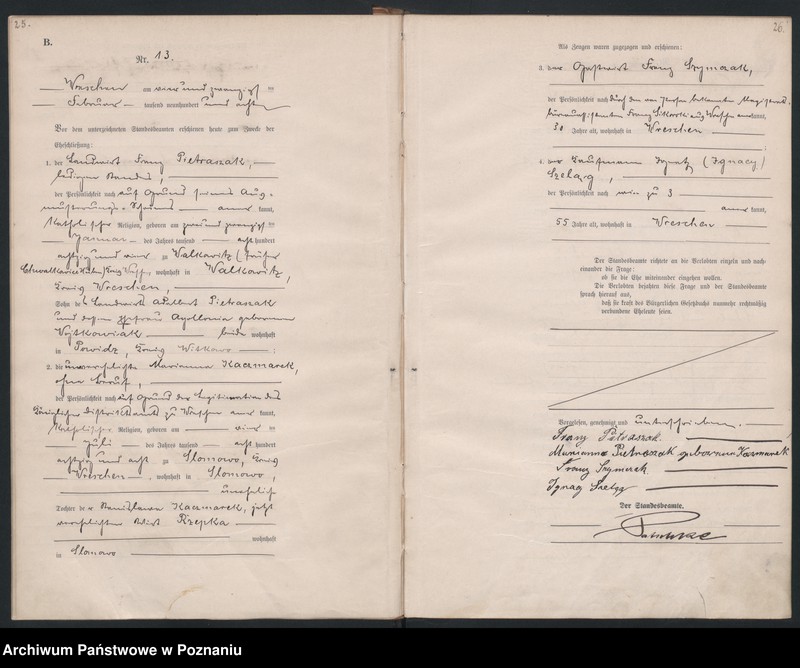 25.
B.
Nr. 13.
Wreschen am vier und zwanzigsten
Februar tausend neunhundert und acht
Vor dem unterzeichneten Standesbeamten erschienen heute zum Zwecke der
Eheschließung:
1. der Landwirt Franz Pietraszak,
ledigen Standes,
der Persönlichkeit nach auf Grund seines Aus-
musterungs-Scheines anerkannt,
Katholischer Religion, geboren am zwei und zwanzigsten
Januar des Jahres tausend acht hundert
achtzig und vier zu Walkowitz (früher
wohnhaft in Walkowitz,
Kreis Wreschen,
Sohn des Landwirts Adalbert Pietraszak
und dessen Ehefrau Apollonia geborenen
Wojtkowiak beide wohnhaft
in Powidz, Kreis Witkowo
2. die unverehelichte Marianna Kaczmarek,
ohne Beruf,
der Persönlichkeit nach auf Grund der Legitimation des
Königlichen Distriktsamts zu Wreschen anerkannt,
Katholischer Religion, geboren am vier
Juli des Jahres tausend acht hundert
achtzig und acht zu Slomowo, Kreis
Wreschen, wohnhaft in Slomowo,
unehelich
Tochter der Stanislawa Kaczmarek, jetzt
verehelichten Wirt Rzepka
wohnhaft
in Slomowo
26.
Als Zeugen waren zugezogen und erschienen:
3. der Gastwirt Franz Szymczak,
der Persönlichkeit nach durch den von Person bekannten Magistrats-
büreaugehilfen Franz Sikorski aus Wreschen anerkannt,
30 Jahre alt, wohnhaft in Wreschen
4. der Kaufmann Ignatz (Ignacy)
Szeląg,
der Persönlichkeit nach wie zu 3
anerkannt,
55 Jahre alt, wohnhaft in Wreschen
Der Standesbeamte richtete an die Verlobten einzeln und nach-
einander die Frage:
ob sie die Ehe miteinander eingehen wollen.
Die Verlobten bejahten diese Frage und der Standesbeamte
sprach hierauf aus,
daß sie kraft des Bürgerlichen Gesetzbuchs nunmehr rechtmäßig
verbundene Eheleute seien.
Vorgelesen, genehmigt und unterschrieben.
Franz Pietraszak.
Marianna Pietraszak geborene Kaczmarek
Franz Szymczak.
Ignac Szeląg
Der Standesbeamte.
Archiwum Państwowe w Poznaniu